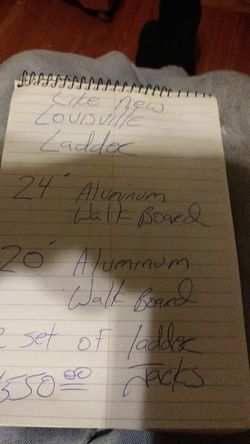 Like New
Louisville
Ladder
24' Aluminum
Walk Board
20' Aluminum
Walk Board
set of ladder
Jacks
550.00